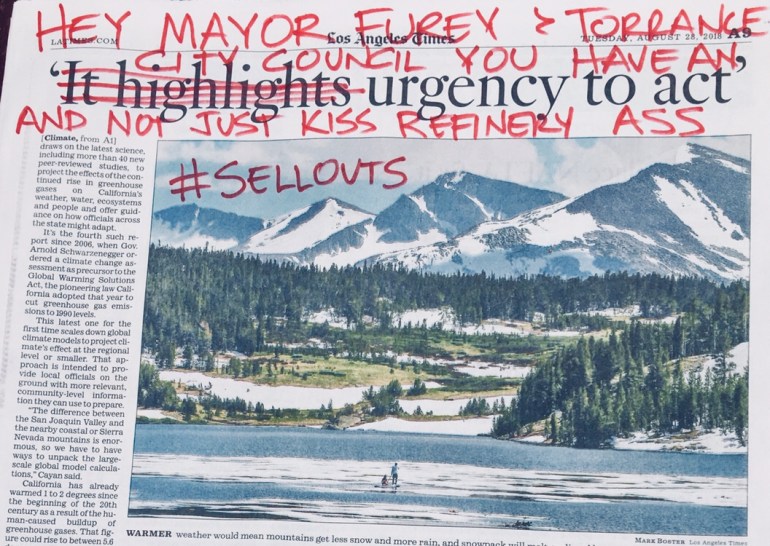 HEY MAYOR FUREY & TORRANCE
LATIMES.COM
Los Angeles Times
TUESDAY, AUGUST 28, 2018 A9
CITY COUNCIL YOU HAVE AN
‘It highlights urgency to act’
AND NOT JUST KISS REFINERY ASS
#SELLOUTS
[Climate, from A1]
draws on the latest science,
including more than 40 new
peer-reviewed studies, to
project the effects of the con-
tinued rise in greenhouse
gases on California's
weather, water, ecosystems
and people and offer guid-
ance on how officials across
the state might adapt.
It's the fourth such re-
port since 2006, when Gov.
Arnold Schwarzenegger or-
dered a climate change as-
sessment as precursor to the
Global Warming Solutions
Act, the pioneering law Cali-
fornia adopted that year to
cut greenhouse gas emis-
sions to 1990 levels.
This latest one for the
first time scales down global
climate models to project cli-
mate's effect at the regional
level or smaller. That ap-
proach is intended to pro-
vide local officials on the
ground with more relevant,
community-level informa-
tion they can use to prepare.
"The difference between
the San Joaquin Valley and
the nearby coastal or Sierra
Nevada mountains is enor-
mous, so we have to have
ways to unpack the large-
scale global model calcula-
tions," Cayan said.
California has already
warmed 1 to 2 degrees since
the beginning of the 20th
century as a result of the hu-
man-caused buildup of
greenhouse gases. That fig-
ure could rise to between 5.6
MARK BOSTER Los Angeles Times
WARMER weather would mean mountains get less snow and more rain, and snowpack will